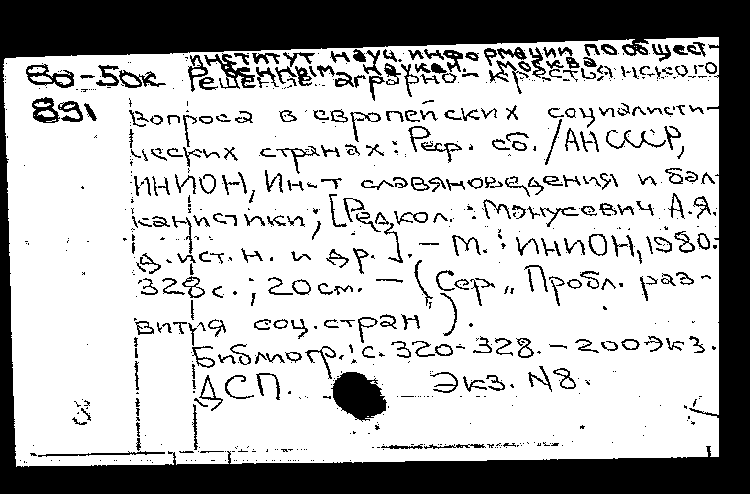 институт науч. информации по общест-
венным наукам Москва
80-50к Решение аграрно-крестьянского
891 вопроса в европейских социалисти-
ческих странах: Реф. сб. / АН СССР,
ИНИОН, Ин-т славяноведения и бал-
канистики; [Редкол.: Манусевич А.Я.
д. ист. н. и др.]. – М.: ИНИОН, 1980.-
328 с.; 20 см. – (Сер. „Пробл. раз-
вития соц. стран").
Библиогр.: с. 320-328. – 200 экз.
ДСП. Экз. N8.
8